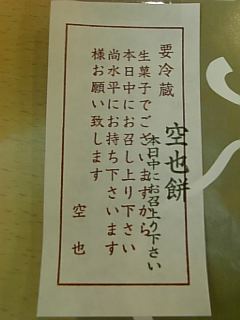 要冷蔵
空也餅
本日中にお召上り下さい
生菓子でございますから
本日中にお召し上り下さい
尚水平にお持ち下さいます
様お願い致します
空也